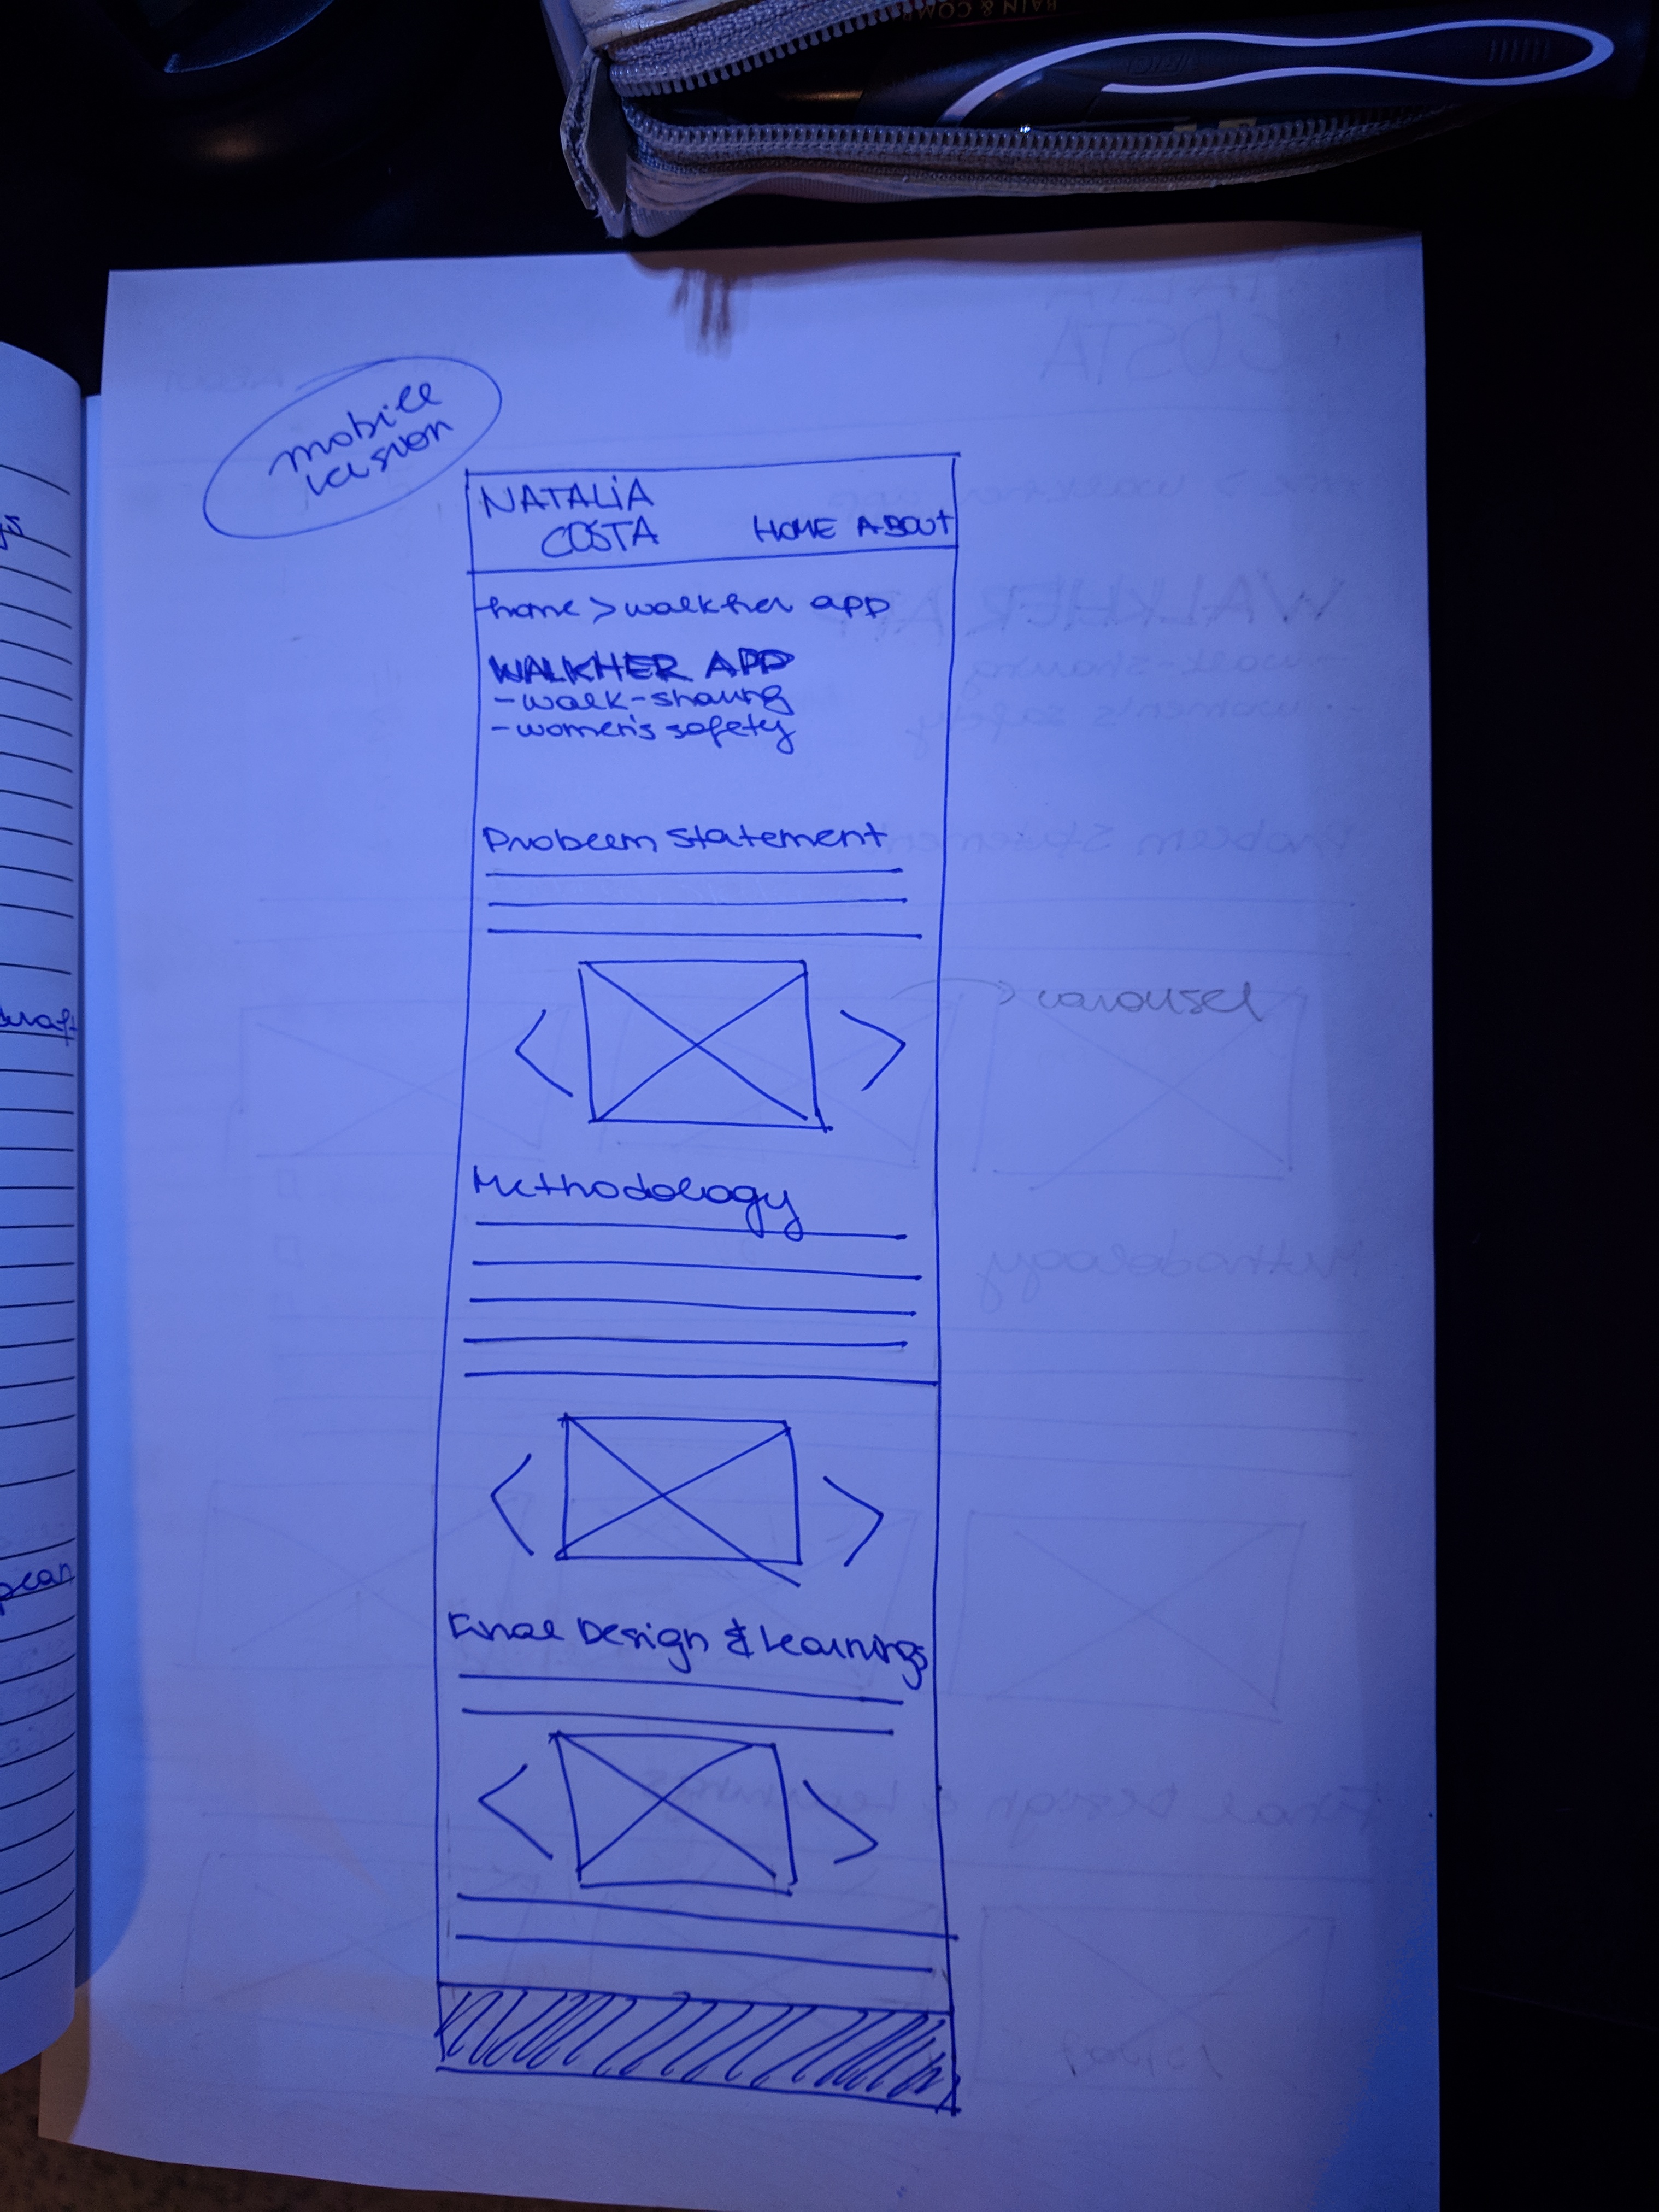 mobile
version
NATALIA
COSTA
HOME ABOUT
home > walkher app
WALKHER APP
- walk-sharing
- women's safety
Problem statement
carousel
Methodology
Final Design & Learnings
draft
plan
BAIN & COM